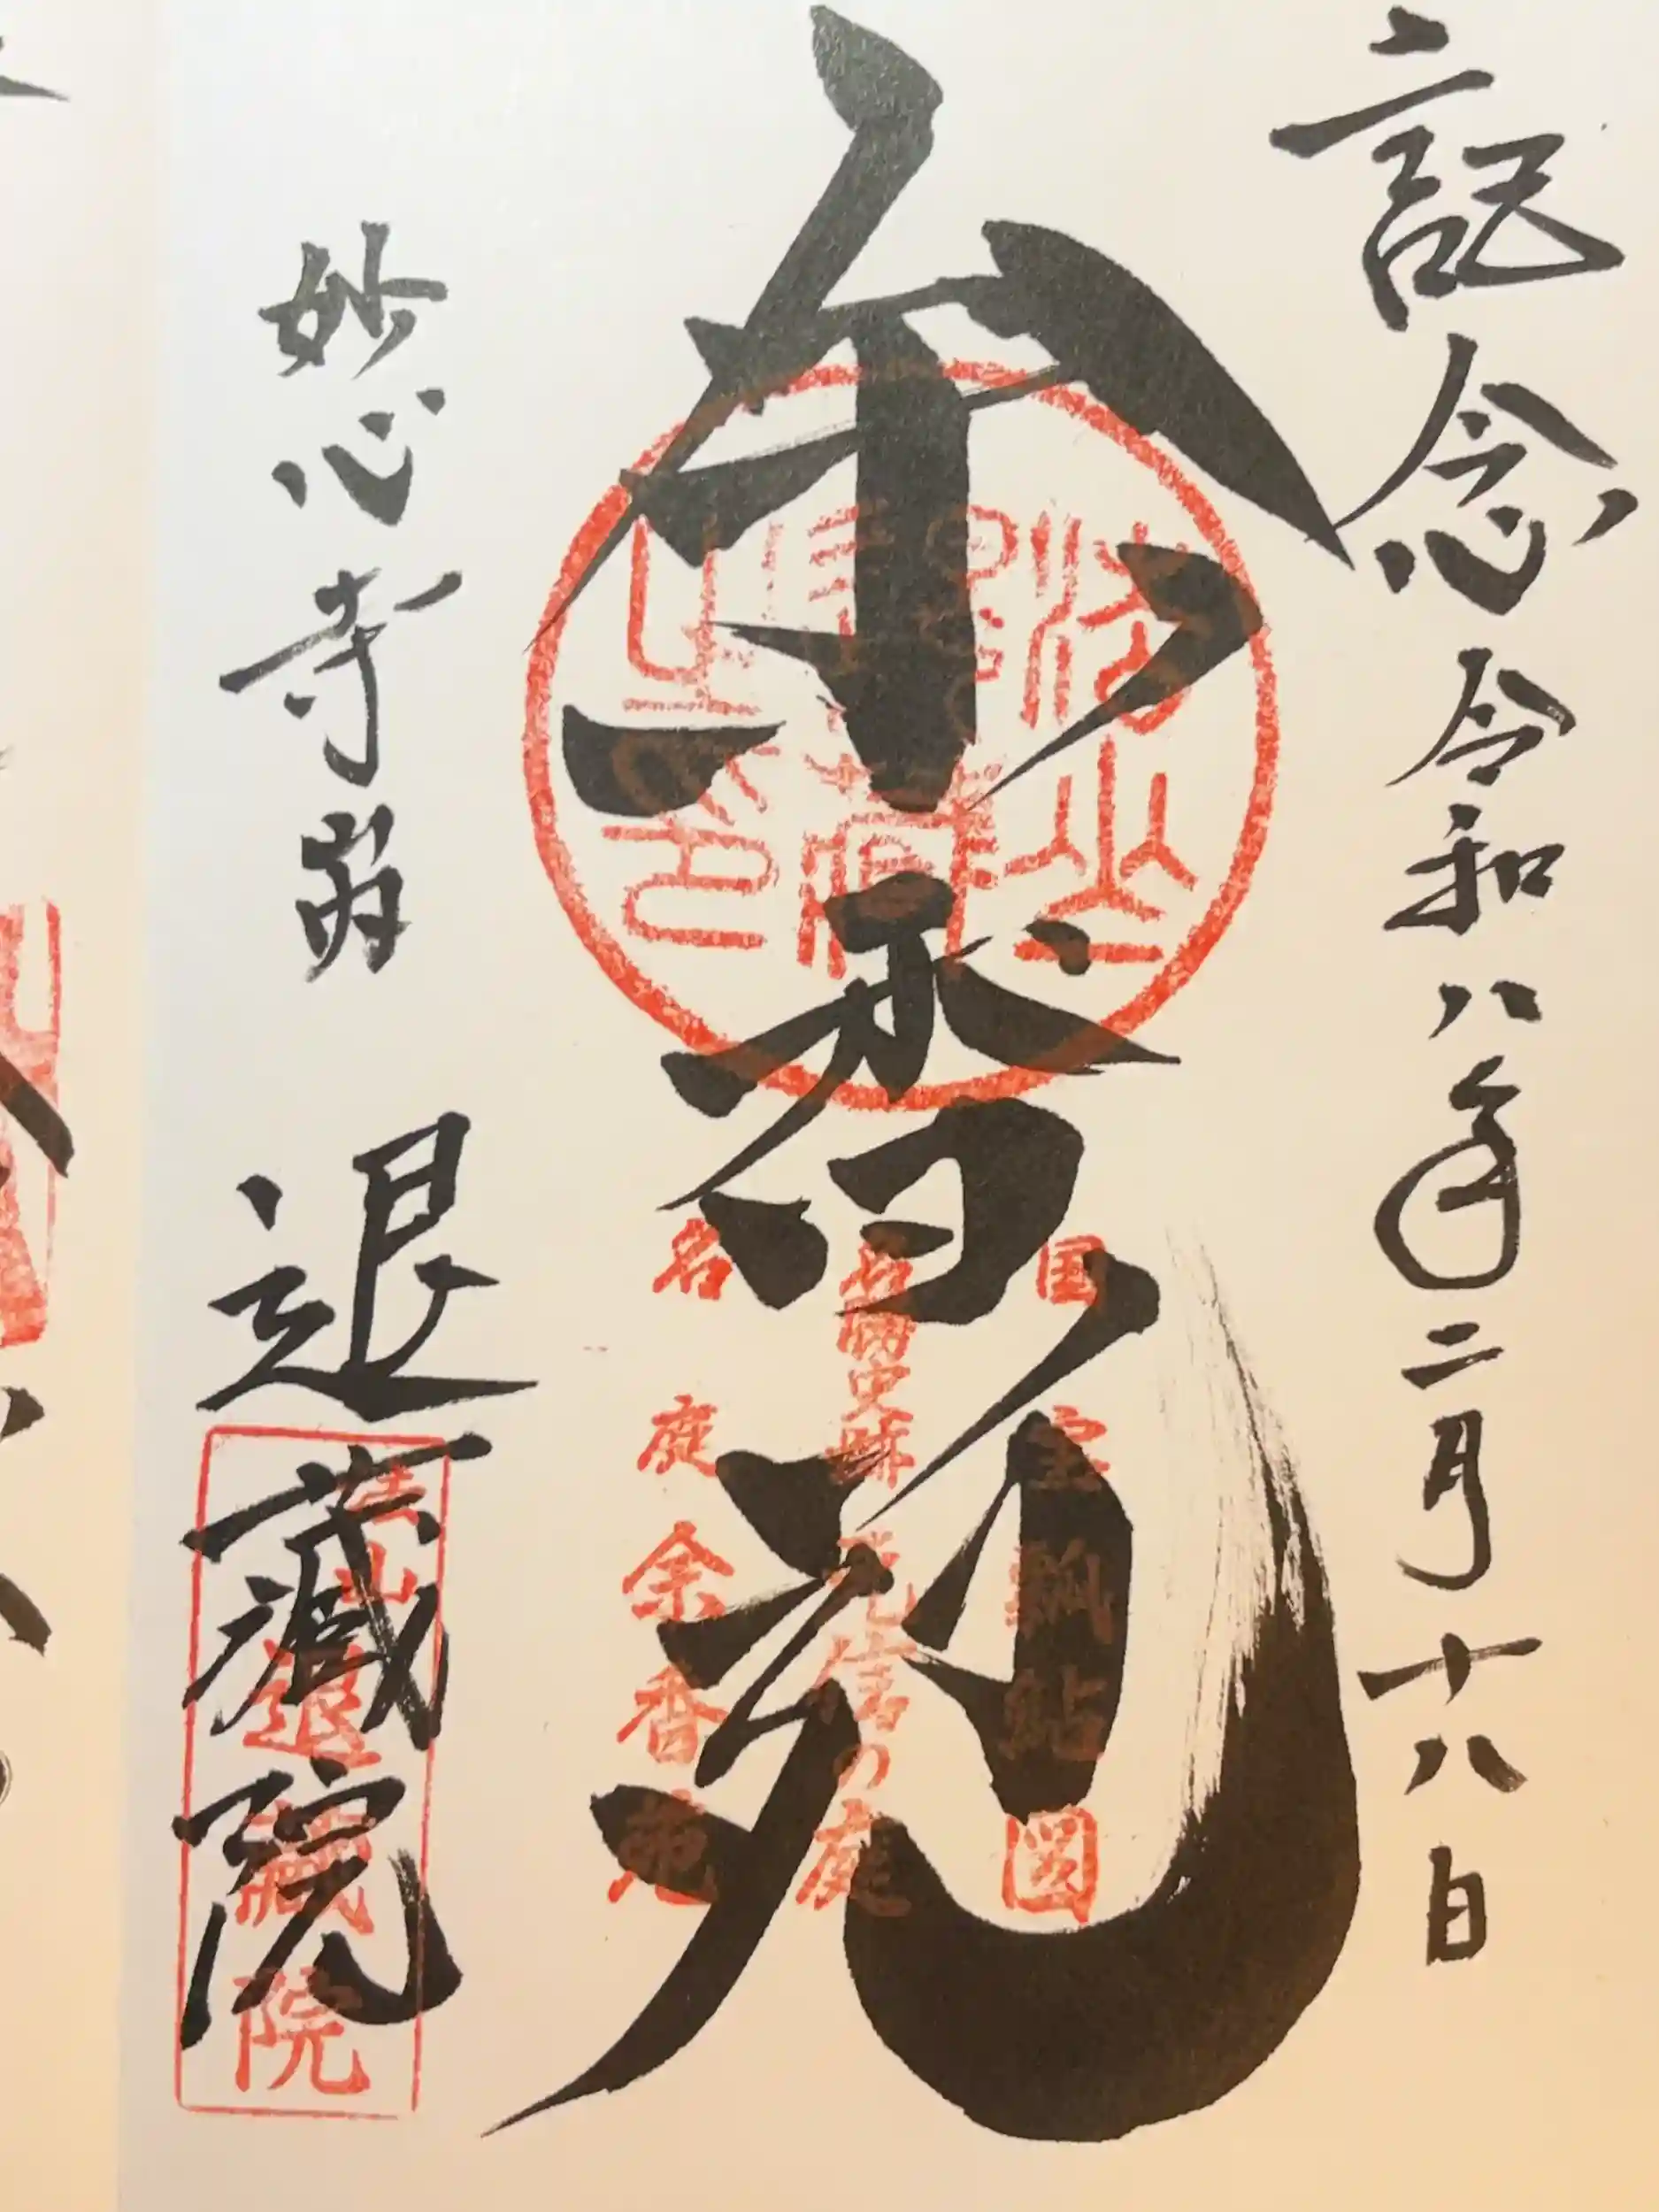 記念 令和八年二月十八日
余香苑
国宝瓢鮎図
名勝史跡 元信の庭
名庭 余香苑
妙心寺
退藏院
退藏院